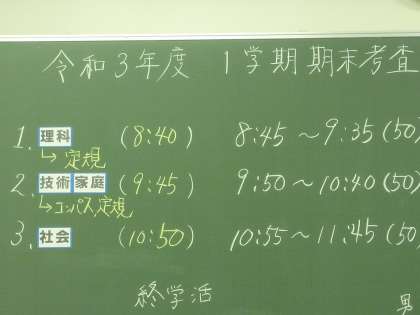 令和3年度 1学期 期末考査
1. 理科 (8:40) 8:45〜9:35(50)
↳定規
2. 技術 家庭 (9:45) 9:50〜10:40(50)
↳コンパス,定規
3. 社会 (10:50) 10:55〜11:45(50)
終学活
男